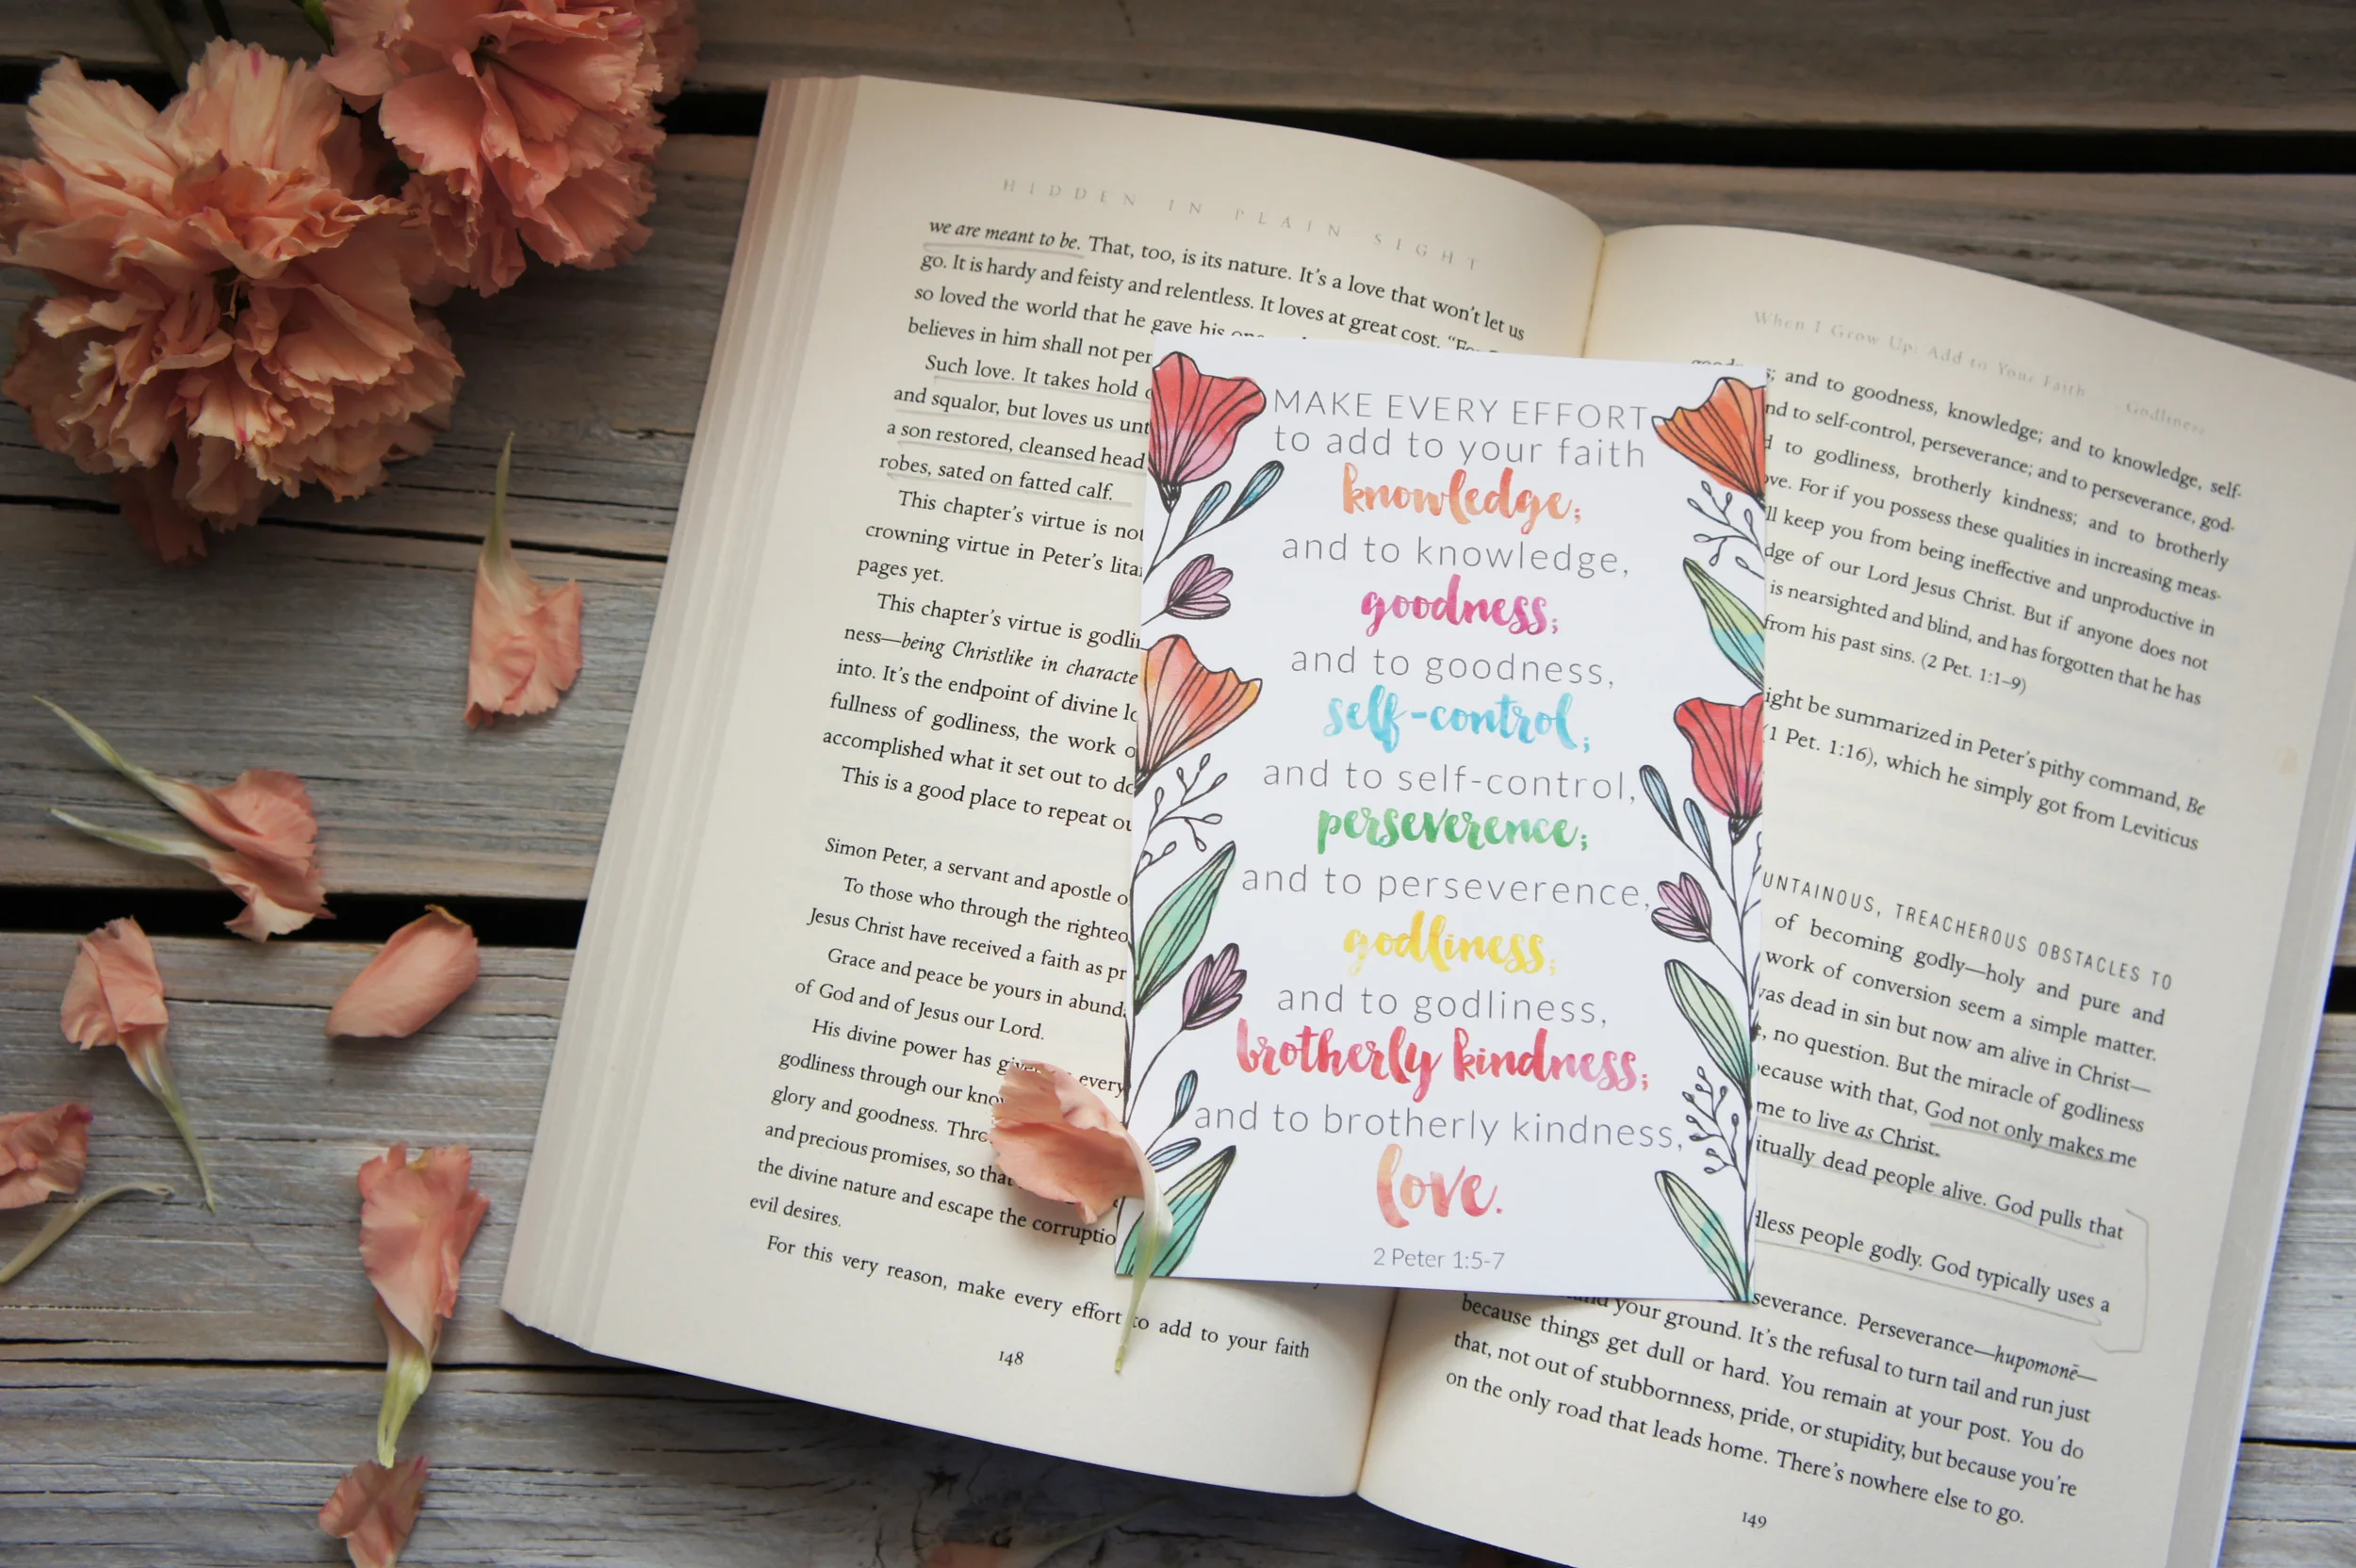 HIDDEN IN PLAIN SIGHT
we are meant to be. That, too, is its nature. It's a love that won't let us
go. It is hardy and feisty and relentless. It loves at great cost.
so loved the world that he gave his
believes in him shall not per
Such love. It takes hold
and squalor, but loves us unt
a son restored, cleansed head
robes, sated on fatted calf.
This chapter's virtue is not
crowning virtue in Peter's lita
pages yet.
This chapter's virtue is godli
ness—being Christlike in characte
into. It's the endpoint of divine lo
fullness of godliness, the work o
accomplished what it set out to do
This is a good place to repeat ou
Simon Peter, a servant and apostle o
To those who through the righteo
Jesus Christ have received a faith as pr
Grace and peace be yours in abund
of God and of Jesus our Lord.
His divine power has every
godliness through our kno
glory and goodness. Thro
and precious promises, so that
the divine nature and escape the corruptio
evil desires.
For this very reason, make every effort to add to your faith
148
MAKE EVERY EFFORT
to add to your faith
knowledge;
and to knowledge,
goodness;
and to goodness,
self-control;
and to self-control,
perseverence;
and to perseverence,
godliness;
and to godliness,
brotherly kindness;
and to brotherly kindness,
love.
2 Peter 1:5-7
When I Grow Up: Add to Your Faith . . . Godliness
; and to goodness, knowledge; and to knowledge, self-
nd to self-control, perseverance; and to perseverance, god-
d to godliness, brotherly kindness; and to brotherly
ove. For if you possess these qualities in increasing meas-
ll keep you from being ineffective and unproductive in
dge of our Lord Jesus Christ. But if anyone does not
is nearsighted and blind, and has forgotten that he has
from his past sins. (2 Pet. 1:1–9)
ight be summarized in Peter's pithy command, Be
(1 Pet. 1:16), which he simply got from Leviticus
UNTAINOUS, TREACHEROUS OBSTACLES TO
of becoming godly—holy and pure and
work of conversion seem a simple matter.
was dead in sin but now am alive in Christ—
, no question. But the miracle of godliness
ecause with that, God not only makes me
me to live as Christ.
itually dead people alive. God pulls that
dless people godly. God typically uses a
severance. Perseverance—hupomonē—
your ground. It's the refusal to turn tail and run just
because things get dull or hard. You remain at your post. You do
that, not out of stubbornness, pride, or stupidity, but because you're
on the only road that leads home. There's nowhere else to go.
149